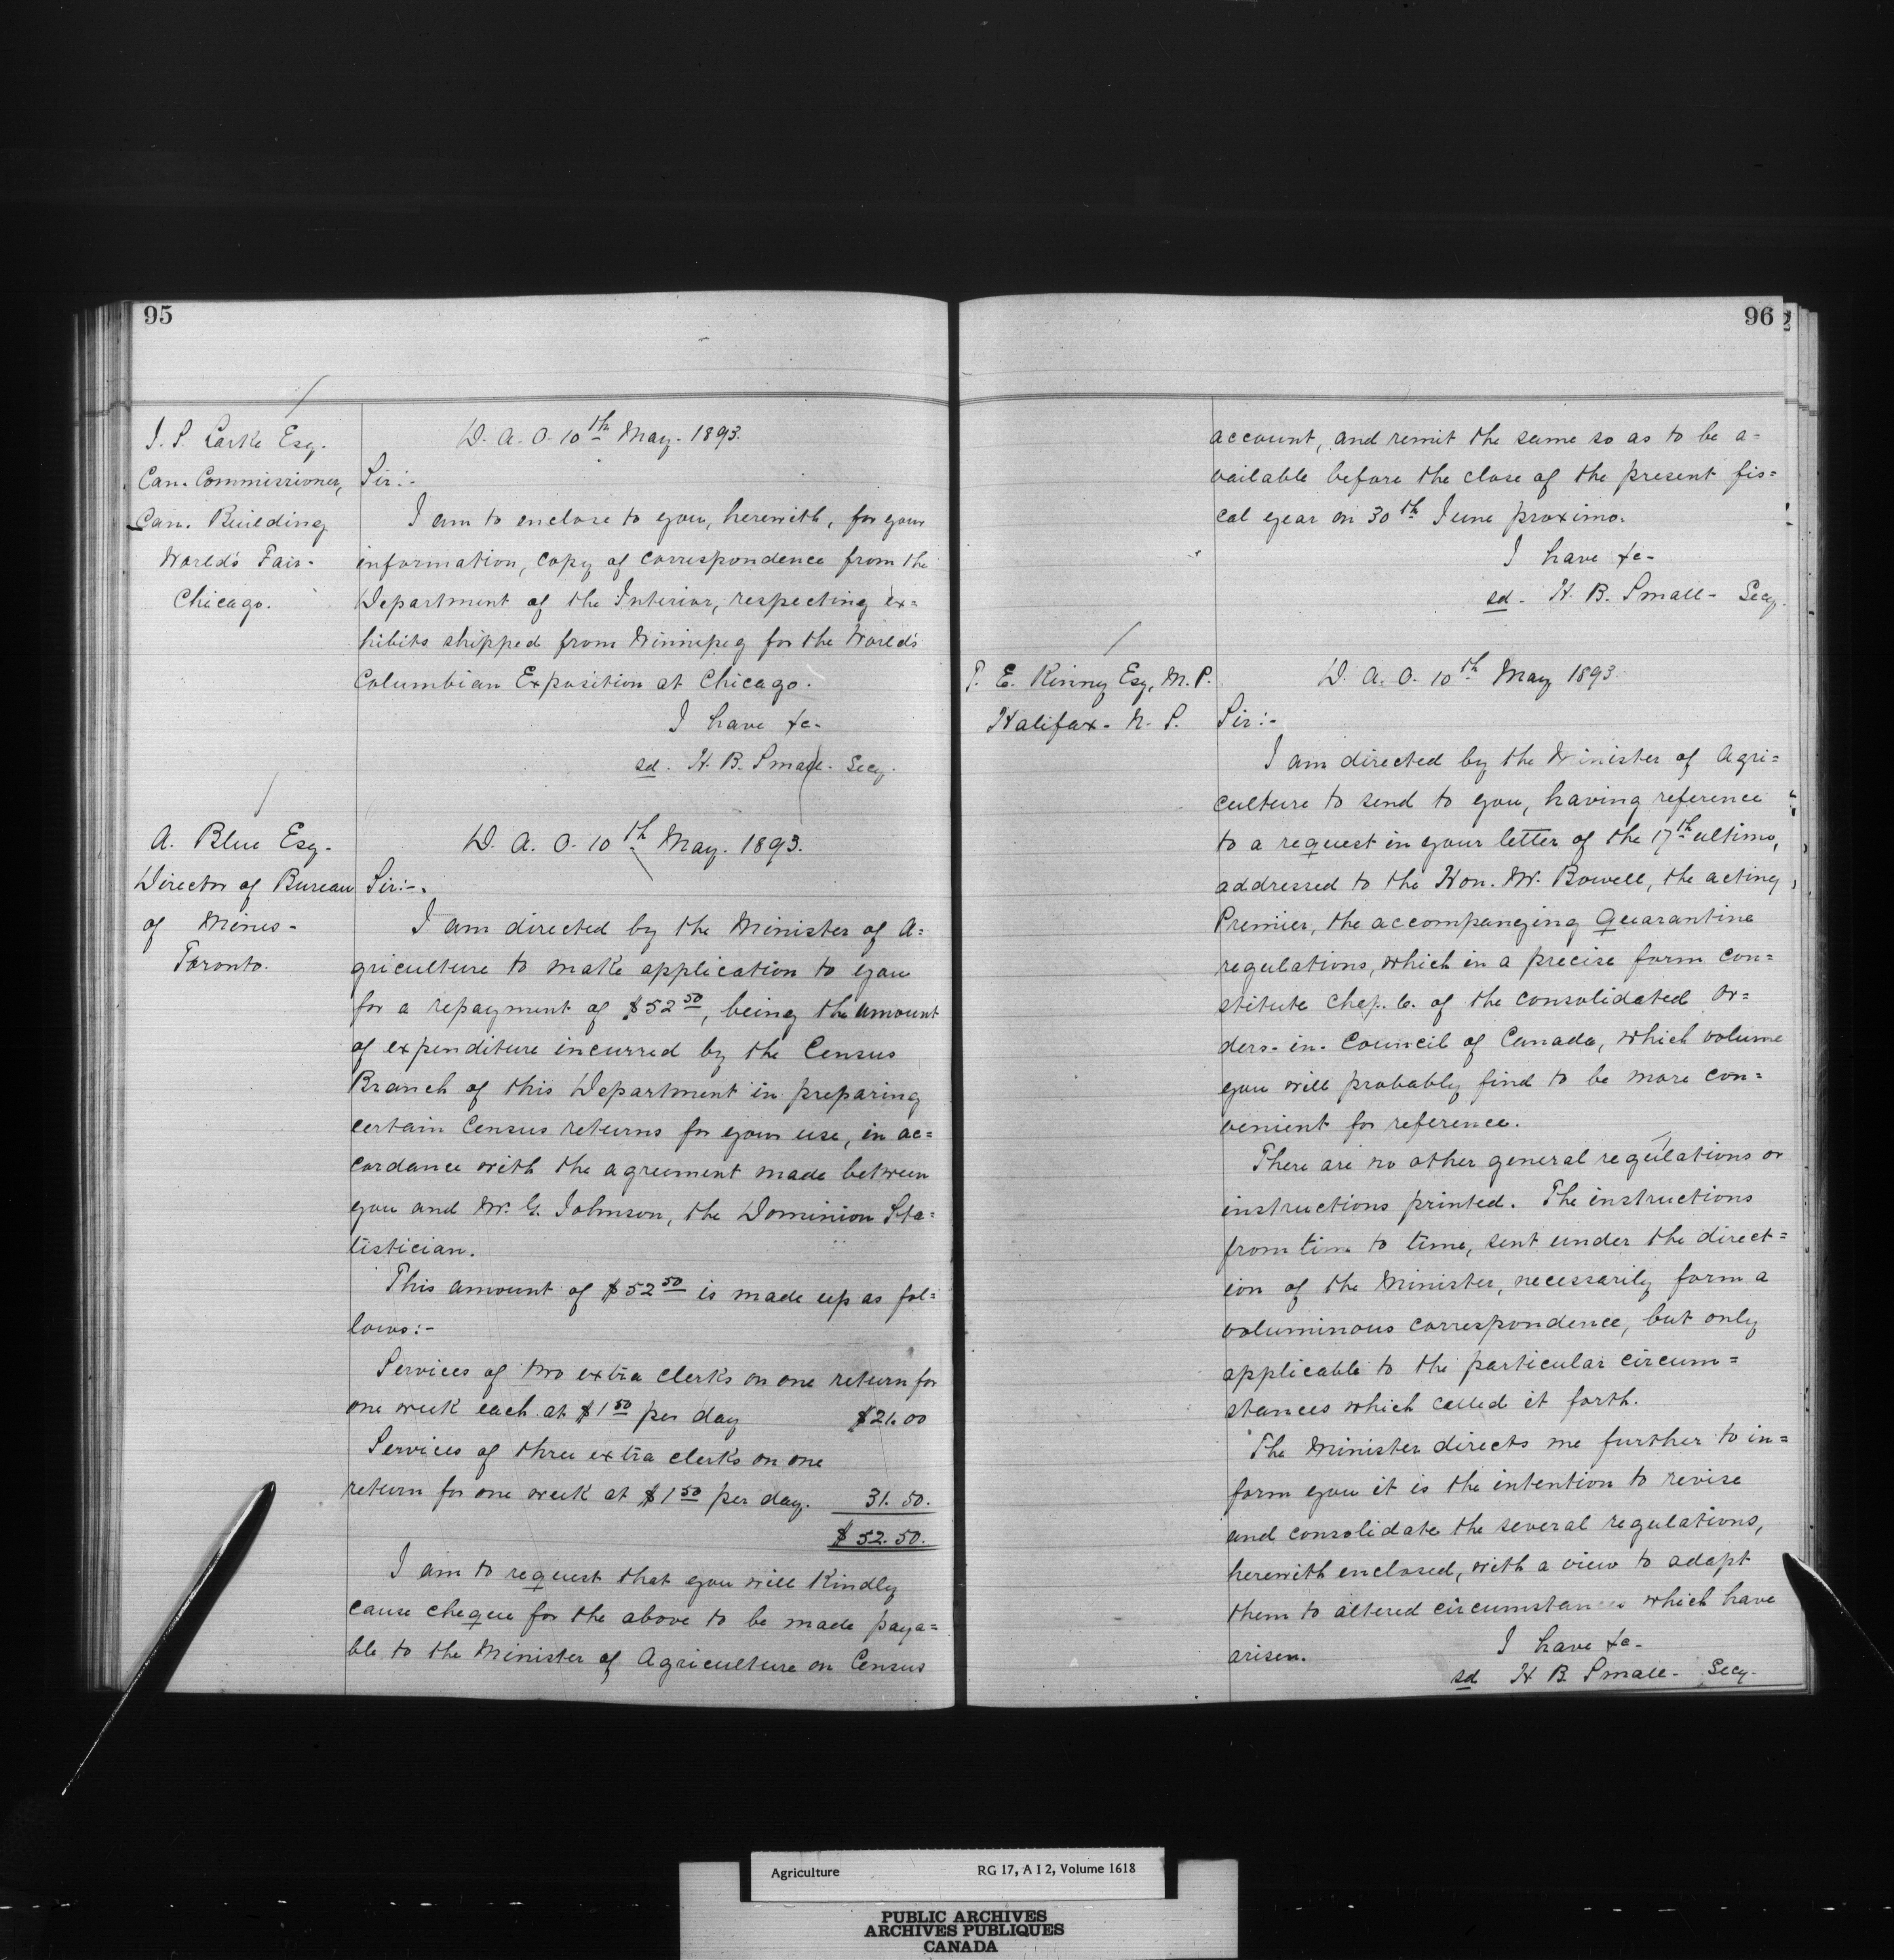 95
J. S. Larke Esq.
Can. Commissioner,
Can. Building
World's Fair-
Chicago.
D. A. O. 10th May. 1893.
Sir:-
I am to enclose to you, herewith, for your
information, copy of correspondence from the
Department of the Interior, respecting ex=
hibits shipped from Winnipeg for the World's
Columbian Exposition at Chicago.
I have &c-
sd. H. B. Small- Secy.
A. Blue Esq.
Director of Bureau
of Mines-
Toronto.
D. A. O. 10th May. 1893.
Sir:-
I am directed by the Minister of A=
griculture to make application to you
for a repayment of $52 50, being the amount
of expenditure incurred by the Census
Branch of this Department in preparing
certain Census returns for your use, in ac=
cordance with the agreement made between
you and Mr. G. Johnson, the Dominion Sta=
tistician.
This amount of $52 50 is made up as fol=
lows:-
Services of two extra clerks on one return for
one week each at $1 50 per day $21.00
Services of three extra clerks on one
return for one week at $1 50 per day. 31.50.
$52.50.
I am to request that you will Kindly
cause cheque for the above to be made paya=
ble to the Minister of Agriculture on Census
96
account, and remit the same so as to be a=
vailable before the close of the present fis=
cal year on 30th June proximo.
I have &c-
sd. H. B. Small- Secy.
T. E. Kenny Esq, M. P.
Halifax- N. S.
D. A. O. 10th May 1893.
Sir:-
I am directed by the Minister of Agri=
culture to send to you, having reference
to a request in your letter of the 17th ultimo,
addressed to the Hon. Mr. Bowell, the acting
Premier, the accompanying Quarantine
regulations, which in a precise form con=
stitute Chap. 6. of the consolidated Or=
ders-in-Council of Canada, which volume
you will probably find to be more con=
venient for reference.
There are no other general regulations or
instructions printed. The instructions
from time to time, sent under the direct=
ion of the Minister, necessarily form a
voluminous correspondence, but only
applicable to the particular circum=
stances which called it forth.
The Minister directs me further to in=
form you it is the intention to revise
and consolidate the several regulations,
herewith enclosed, with a view to adapt
them to altered circumstances which have
arisen.
I have &c-
sd H B Small- Secy-
Agriculture RG 17, A I 2, Volume 1618
PUBLIC ARCHIVES
ARCHIVES PUBLIQUES
CANADA